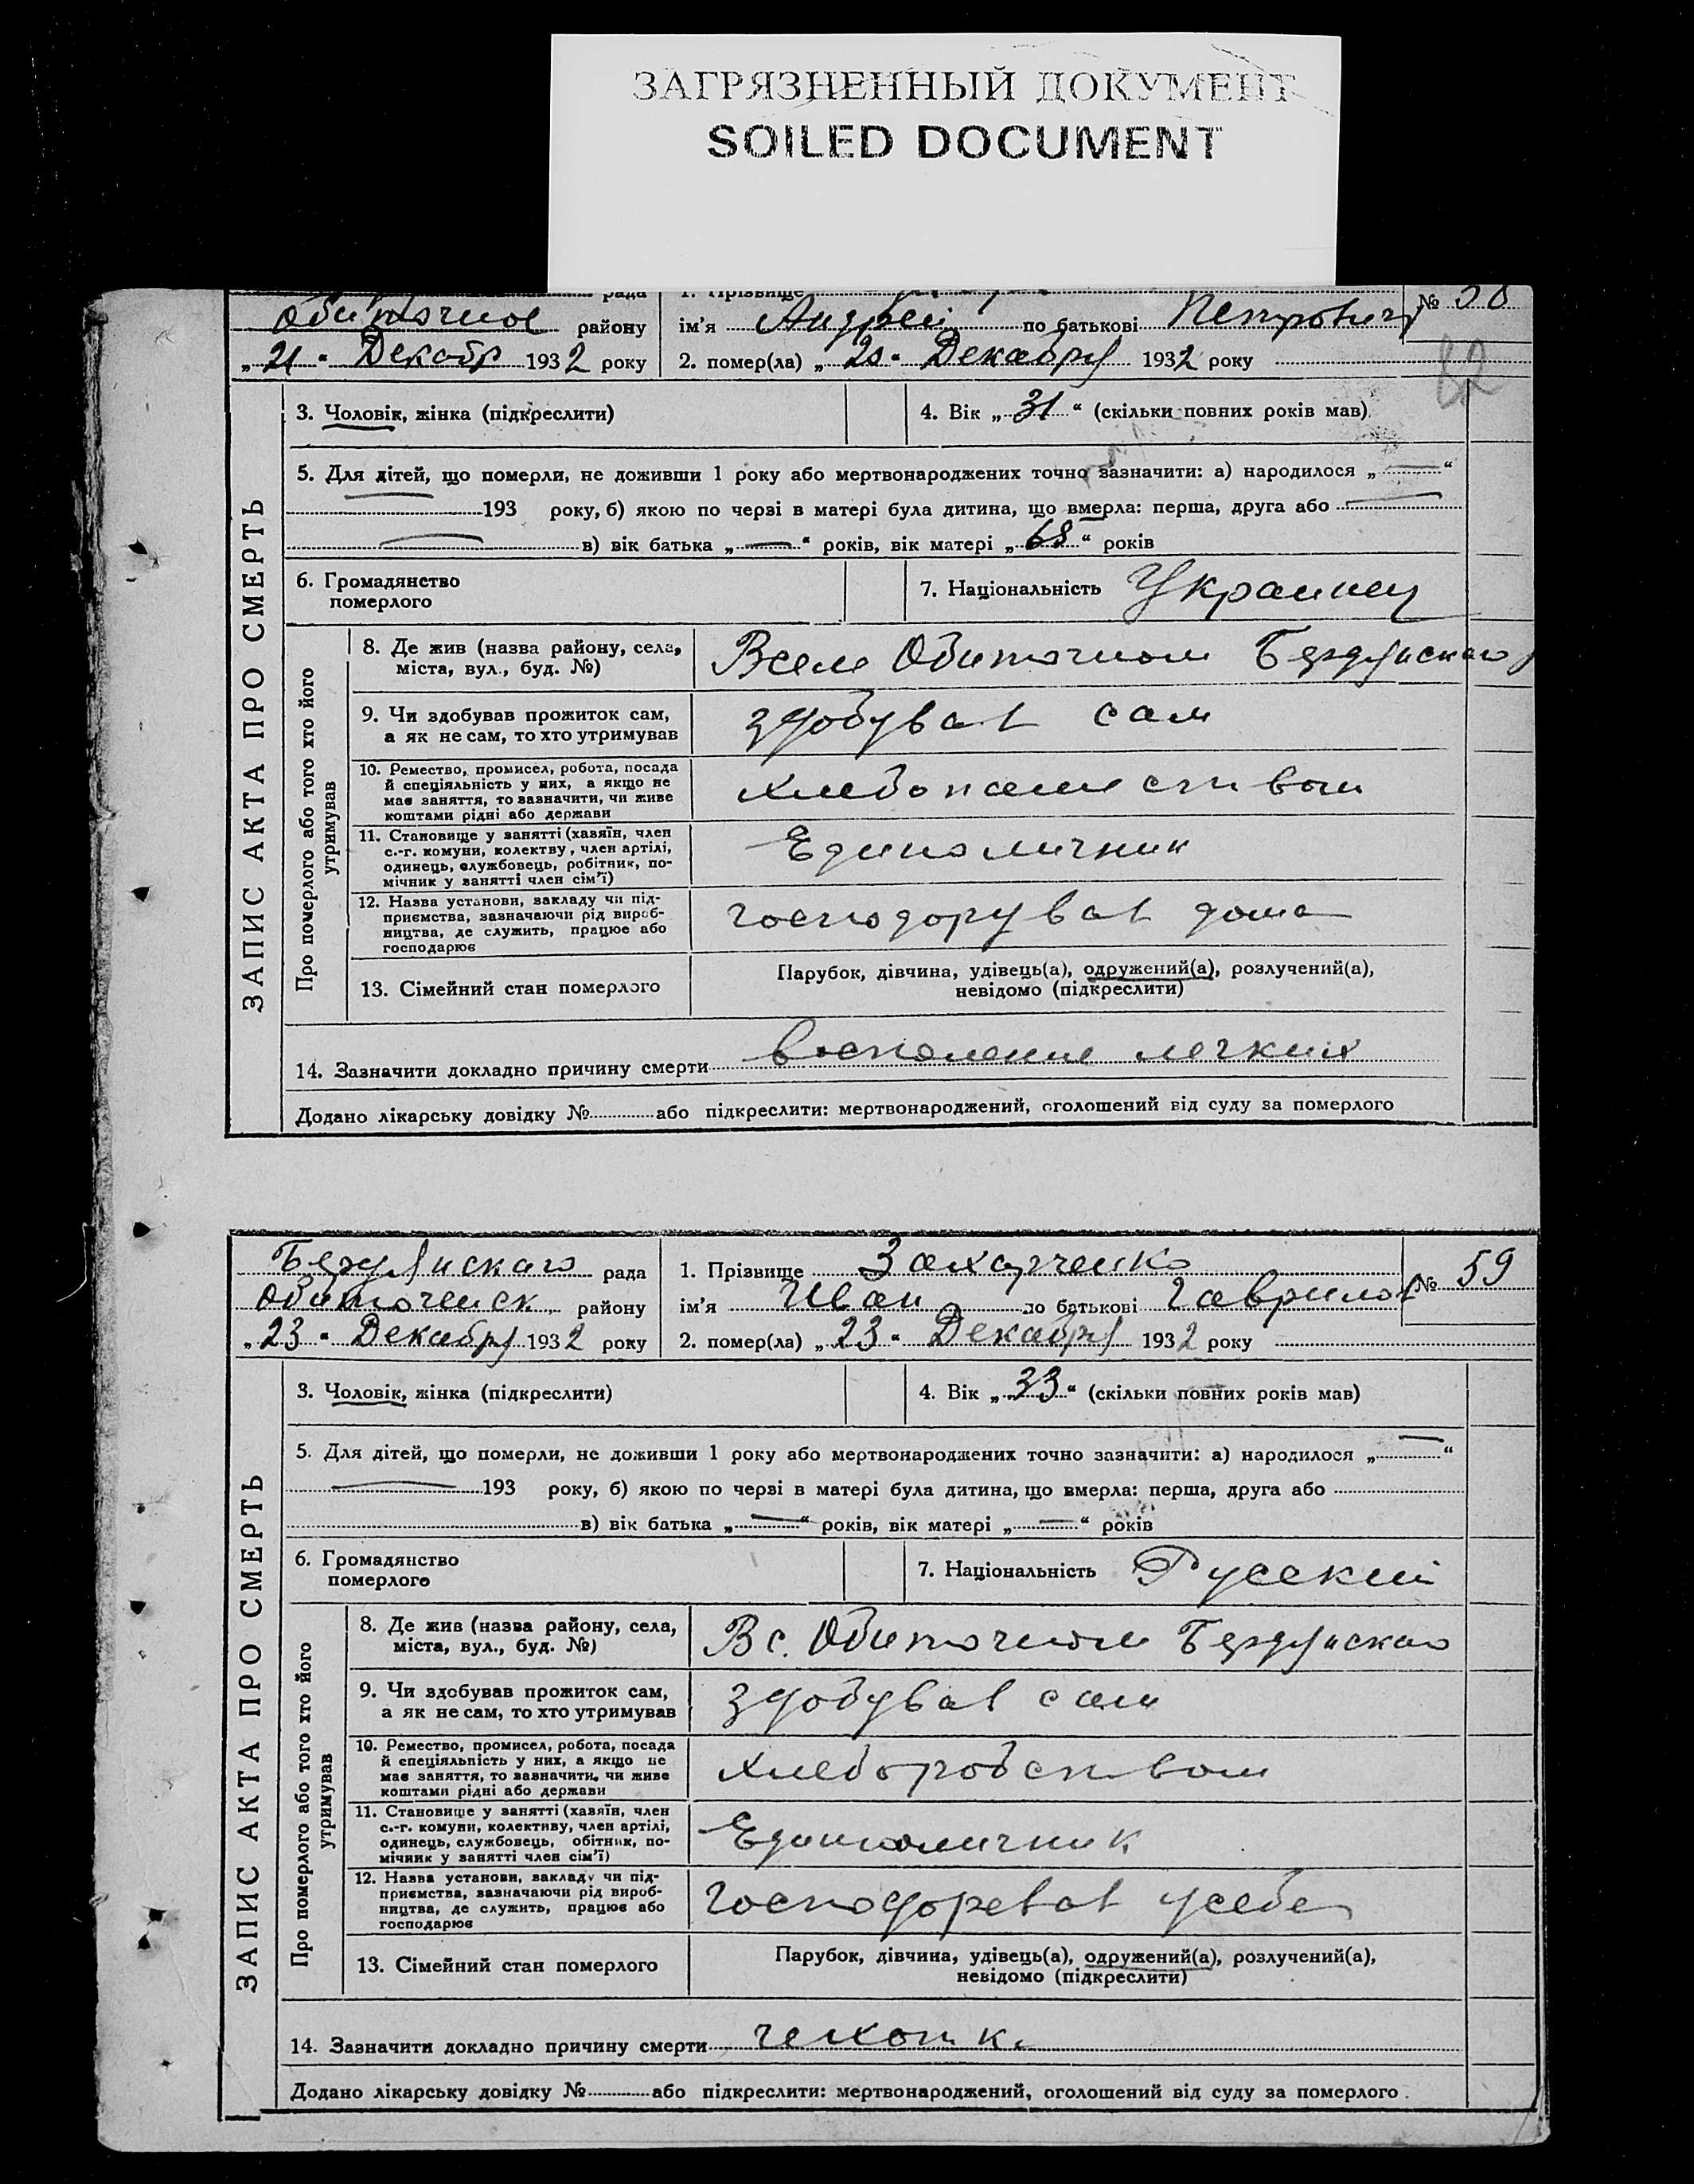 ЗАГРЯЗНЕННЫЙ ДОКУМЕНТ
SOILED DOCUMENT
рада 1. Прізвище
Обиточное району ім'я Андрей по батькові Петрович № 58
„21" Декабр 1932 року 2. помер(ла) „20" Декабря 1932 року
82
3. Чоловік, жінка (підкреслити) 4. Вік „31" (скільки повних років мав)
5. Для дітей, що померли, не доживши 1 року або мертвонароджених точно зазначити: а) народилося „—"
193 року, б) якою по черзі в матері була дитина, що вмерла: перша, друга або —
— в) вік батька „—" років, вік матері „68" років
6. Громадянство
померлого
7. Національність Украинец
ЗАПИС АКТА ПРО СМЕРТЬ
Про померлого або того хто його
утримував
8. Де жив (назва району, села,
міста, вул., буд. №)
Вселе Обиточном Бердянского
9. Чи здобував прожиток сам,
а як не сам, то хто утримував
здобував сам
10. Ремество, промисел, робота, посада
й спеціяльність у них, а якщо не
має заняття, то зазначити, чи живе
коштами рідні або держави
11. Становище у занятті (хазяїн, член
с.-г. комуни, колективу, член артілі,
одинець, службовець, робітник, по-
мічник у занятті член сім'ї)
Единоличник
12. Назва установи, закладу чи під-
приємства, зазначаючи рід вироб-
ництва, де служить, працює або
господарює
господорував дома
13. Сімейний стан померлого
Парубок, дівчина, удівець(а), одружений(а), розлучений(а),
невідомо (підкреслити)
14. Зазначити докладно причину смерти восполение легких
Додано лікарську довідку № або підкреслити: мертвонароджений, оголошений від суду за померлого
Бердянскаго рада 1. Прізвище Захарченко
Обиточенск району ім'я Иван по батькові Гаврилов № 59
„23" Декабря 1932 року 2. помер(ла) „23" Декабря 1932 року
3. Чоловік, жінка (підкреслити) 4. Вік „33" (скільки повних років мав)
5. Для дітей, що померли, не доживши 1 року або мертвонароджених точно зазначити: а) народилося „—"
— 193 року, б) якою по черзі в матері була дитина, що вмерла: перша, друга або
в) вік батька „—" років, вік матері „—" років
6. Громадянство
померлого
7. Національність Русский
ЗАПИС АКТА ПРО СМЕРТЬ
Про померлого або того хто його
утримував
8. Де жив (назва району, села,
міста, вул., буд. №)
Вс. Обиточном Бердянскаго
9. Чи здобував прожиток сам,
а як не сам, то хто утримував
здобував сам
10. Ремество, промисел, робота, посада
й спеціяльність у них, а якщо не
має заняття, то зазначити, чи живе
коштами рідні або держави
хлеборобством
11. Становище у занятті (хазяїн, член
с.-г. комуни, колективу, член артілі,
одинець, службовець, обітник, по-
мічник у занятті член сім'ї)
Единоличник
12. Назва установи, закладу чи під-
приємства, зазначаючи рід вироб-
ництва, де служить, працює або
господарює
господоревав усебе
13. Сімейний стан померлого
Парубок, дівчина, удівець(а), одружений(а), розлучений(а),
невідомо (підкреслити)
14. Зазначити докладно причину смерти чехотка
Додано лікарську довідку № або підкреслити: мертвонароджений, оголошений від суду за померлого.